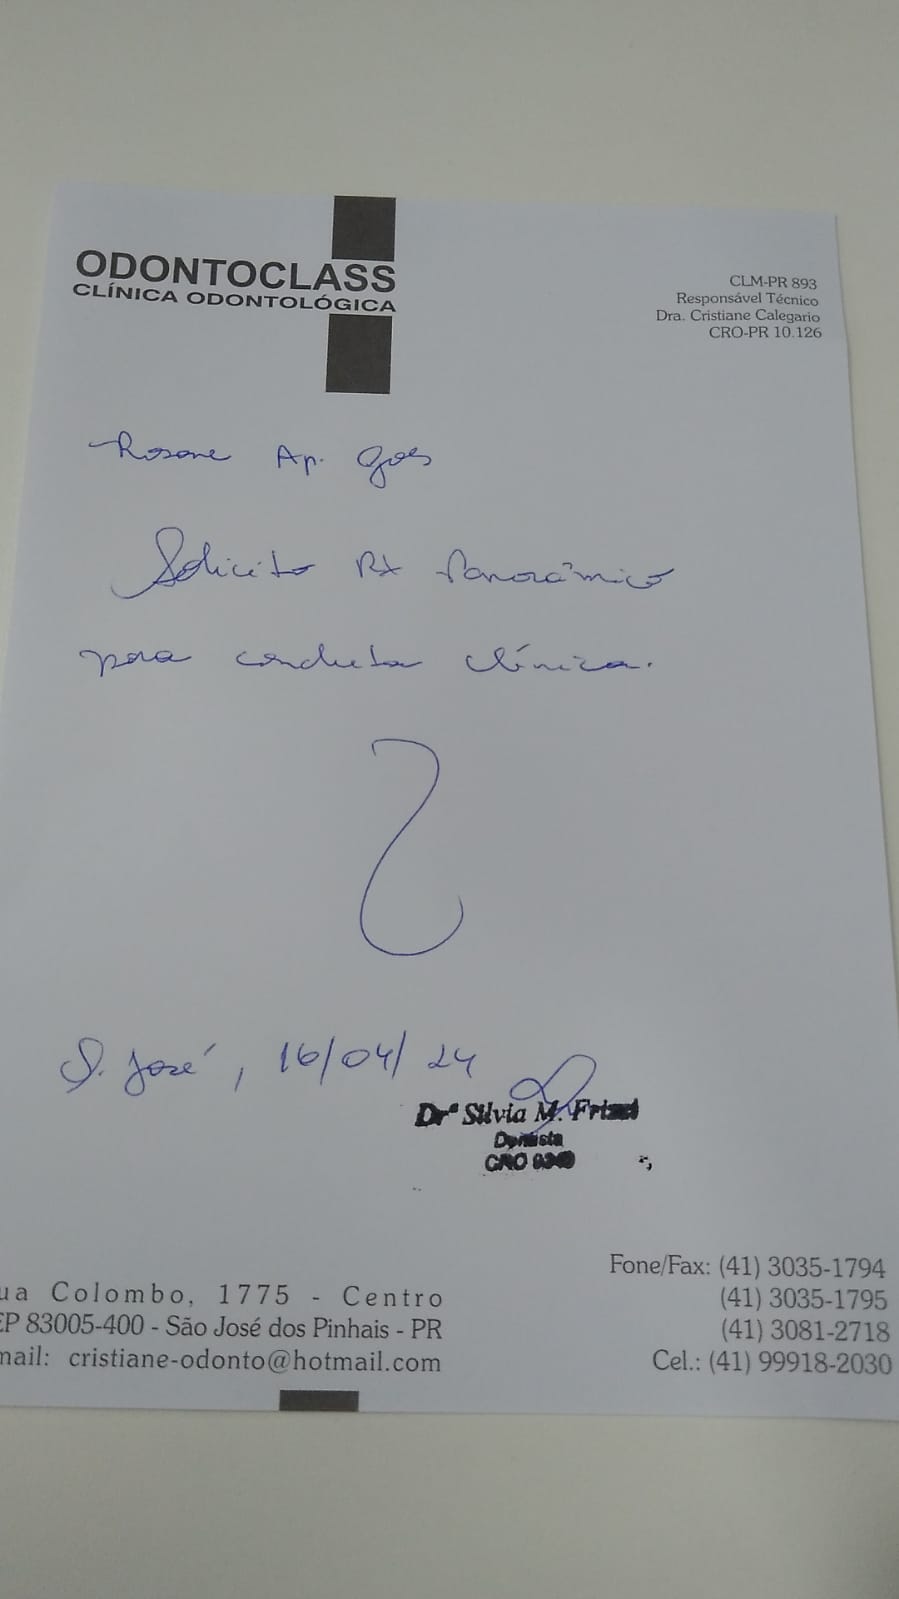 ODONTOCLASS
CLÍNICA ODONTOLÓGICA
CLM-PR 893
Responsável Técnico
Dra. Cristiane Calegario
CRO-PR 10.126
Rosane Ap. Goes
Solicito RX Panorâmico
para conduta clínica.
S. José, 16/04/24
Drª Silvia M.
Dentista
CRO
ua Colombo, 1775 - Centro
EP 83005-400 - São José dos Pinhais - PR
mail: cristiane-odonto@hotmail.com
Fone/Fax: (41) 3035-1794
(41) 3035-1795
(41) 3081-2718
Cel.: (41) 99918-2030